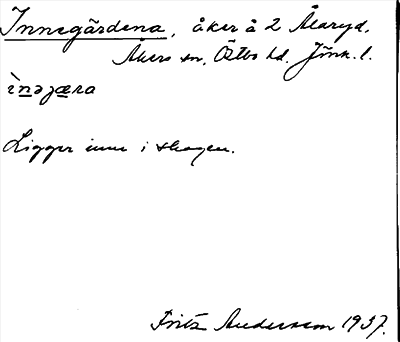 Innegärdena, åker å 2 Ålaryd,
Åkers sn, Östbo hd. Jönk. l.
ìnəjæra
Ligger inne i skogen.
Fritz Andersson 1937.